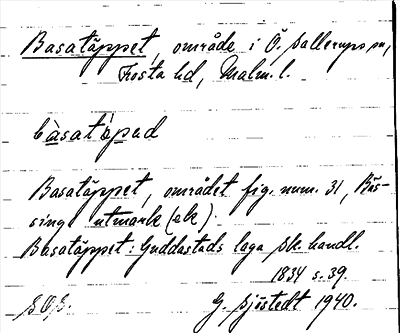 Basatäppet, område i Ö. Sallerups sn,
Frosta hd, Malm. l.
bàsatápad
Basatäppet, området fig. num. 31, Bös-
sing utmark (ek).
Basatäppet: Guddastads laga sk. handl.
1834 s. 39.
G. Sjöstedt 1940.